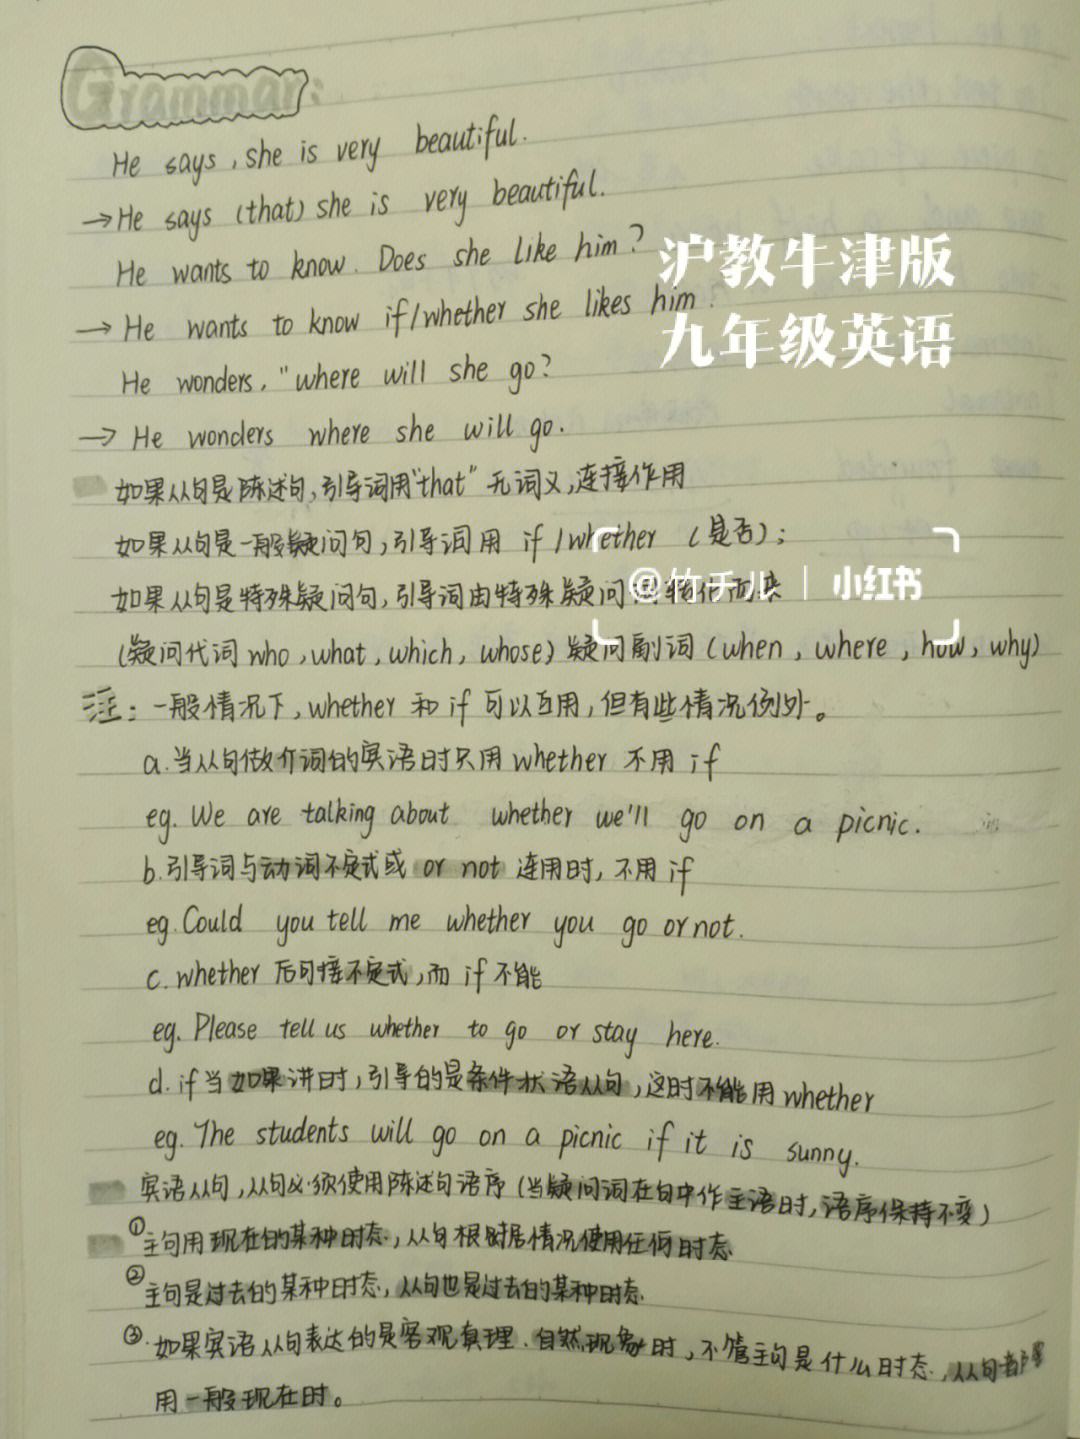 Grammar:
He says, she is very beautiful.
→He says (that) she is very beautiful.
He wants to know. Does she like him?
→ He wants to know if/whether she likes him.
He wonders, "where will she go?
→ He wonders where she will go.
沪教牛津版
九年级英语
如果从句是陈述句,引导词用"that"无词义,连接作用
如果从句是一般疑问句,引导词用 if/whether (是否);
如果从句是特殊疑问句,引导词由特殊疑问词转化而来
@竹千儿 | 小红书
(疑问代词 who, what, which, whose) 疑问副词 (when, where, how, why)
注: 一般情况下, whether 和 if 可以互用, 但有些情况例外。
a.当从句做介词的宾语时只用 whether 不用 if
eg. We are talking about whether we'll go on a picnic.
b.引导词与动词不定式或 or not 连用时, 不用 if
eg. Could you tell me whether you go or not.
c. whether 后可接不定式,而 if 不能
eg. Please tell us whether to go or stay here.
d. if当如果讲时,引导的是条件状语从句,这时不能用 whether
eg. The students will go on a picnic if it is sunny.
宾语从句,从句必须使用陈述句语序(当疑问词在句中作主语时,语序保持不变)
①主句用现在的某种时态,从句根据情况使用任何时态
②主句是过去的某种时态,从句也是过去的某种时态
③.如果宾语从句表达的是客观真理.自然现象时,不管主句是什么时态,从句都
用一般现在时。